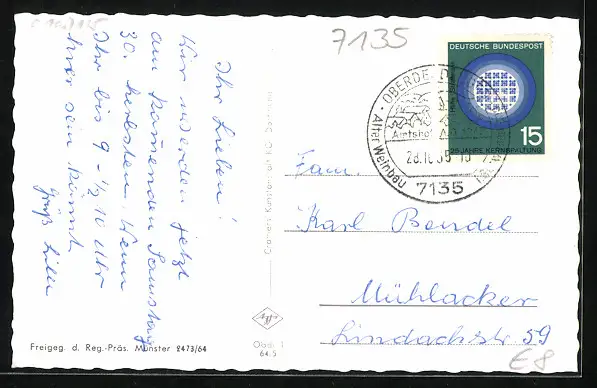 7135
DEUTSCHE BUNDESPOST
15
25 JAHRE KERNSPALTUNG
OBERDE
Amtshof
28.10.65
Alter Weinbau
7135
Ihr Lieben!
Wir werden jetzt
am kommenden Samstag
30. herkommen. Wenn
Ihr bis 9 - 1/2 10 Uhr
hier sein könnt.
Gruß
Fam.
Karl Bendel
Mühlacker
Lindachstr. 59
Cramers Kunstanstalt KG Dortmund
Obdl 1
64.5
Freigeg. d. Reg.-Präs. Münster 2473/64
€8